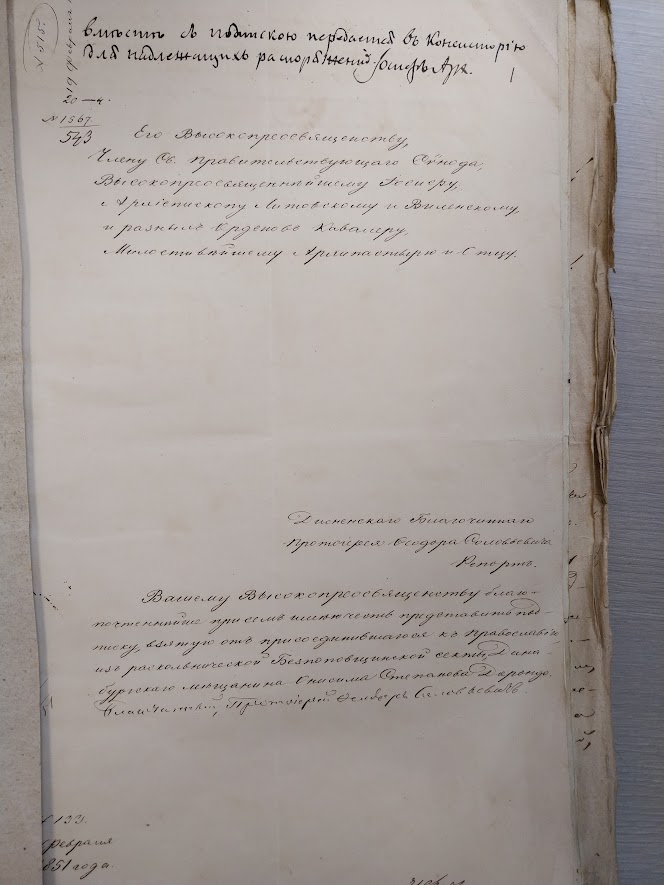 № 515.
19 февраля
вмѣстѣ съ подпискою передается въ Консисторію
для надлежащихъ распоряженій. Іосифъ Арх.
1
№ 1567
543
Его Высокопреосвященству,
Члену Св. Правительствующаго Сѵнода,
Высокопреосвященнѣйшему Іосифу,
Архіепископу Литовскому и Виленскому
и разныхъ Орденовъ Кавалеру,
Милостивѣйшему Архипастырю и Отцу.
Дисненскаго Благочиннаго
Протоіерея Ѳеодора Соловьевича
Репортъ.
Вашему Высокопреосвященству благо-
почтеннѣйше при семъ имѣю честь представить под-
писку, взятую отъ присоединившагося къ Православію
изъ раскольнической Безпоповщинской секты, Дина-
бургскаго мѣщанина Онисима Степанова
Благочинный, Протоіерей Ѳеодоръ Соловьевичъ.
133.
февраля
851 года.